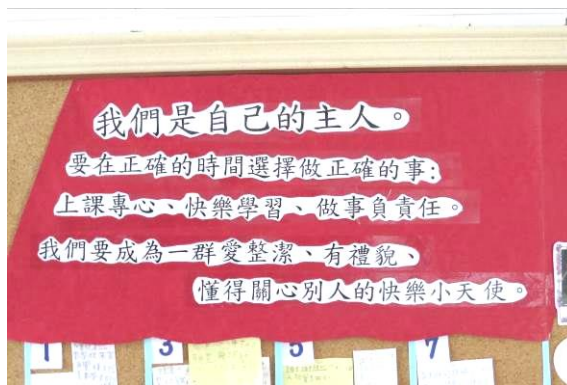 我們是自己的主人。
要在正確的時間選擇做正確的事:
上課專心、快樂學習、做事負責任。
我們要成為一群愛整潔、有禮貌、
懂得關心別人的快樂小天使。
1
3
5
7